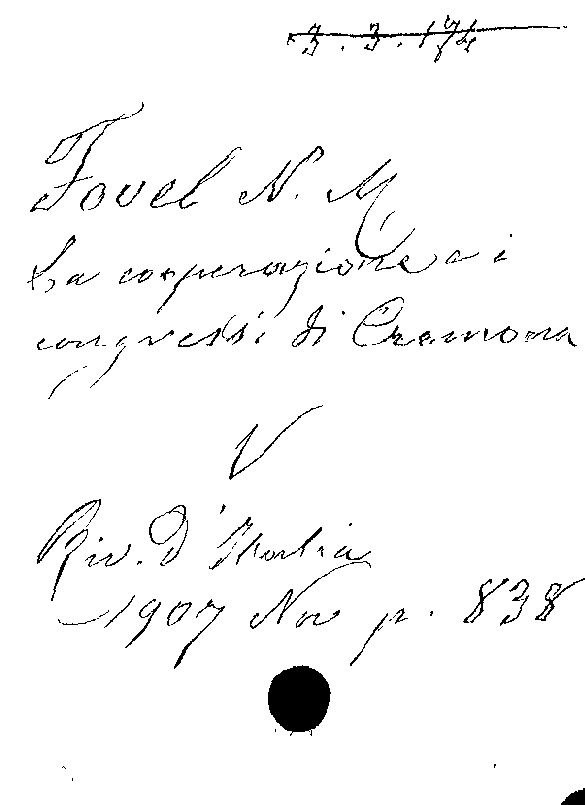 3.3.174
Fovel N. M.
La cooperazione e i
congressi di Cremona
V
Riv. D'Italia
1907 Nov p. 838